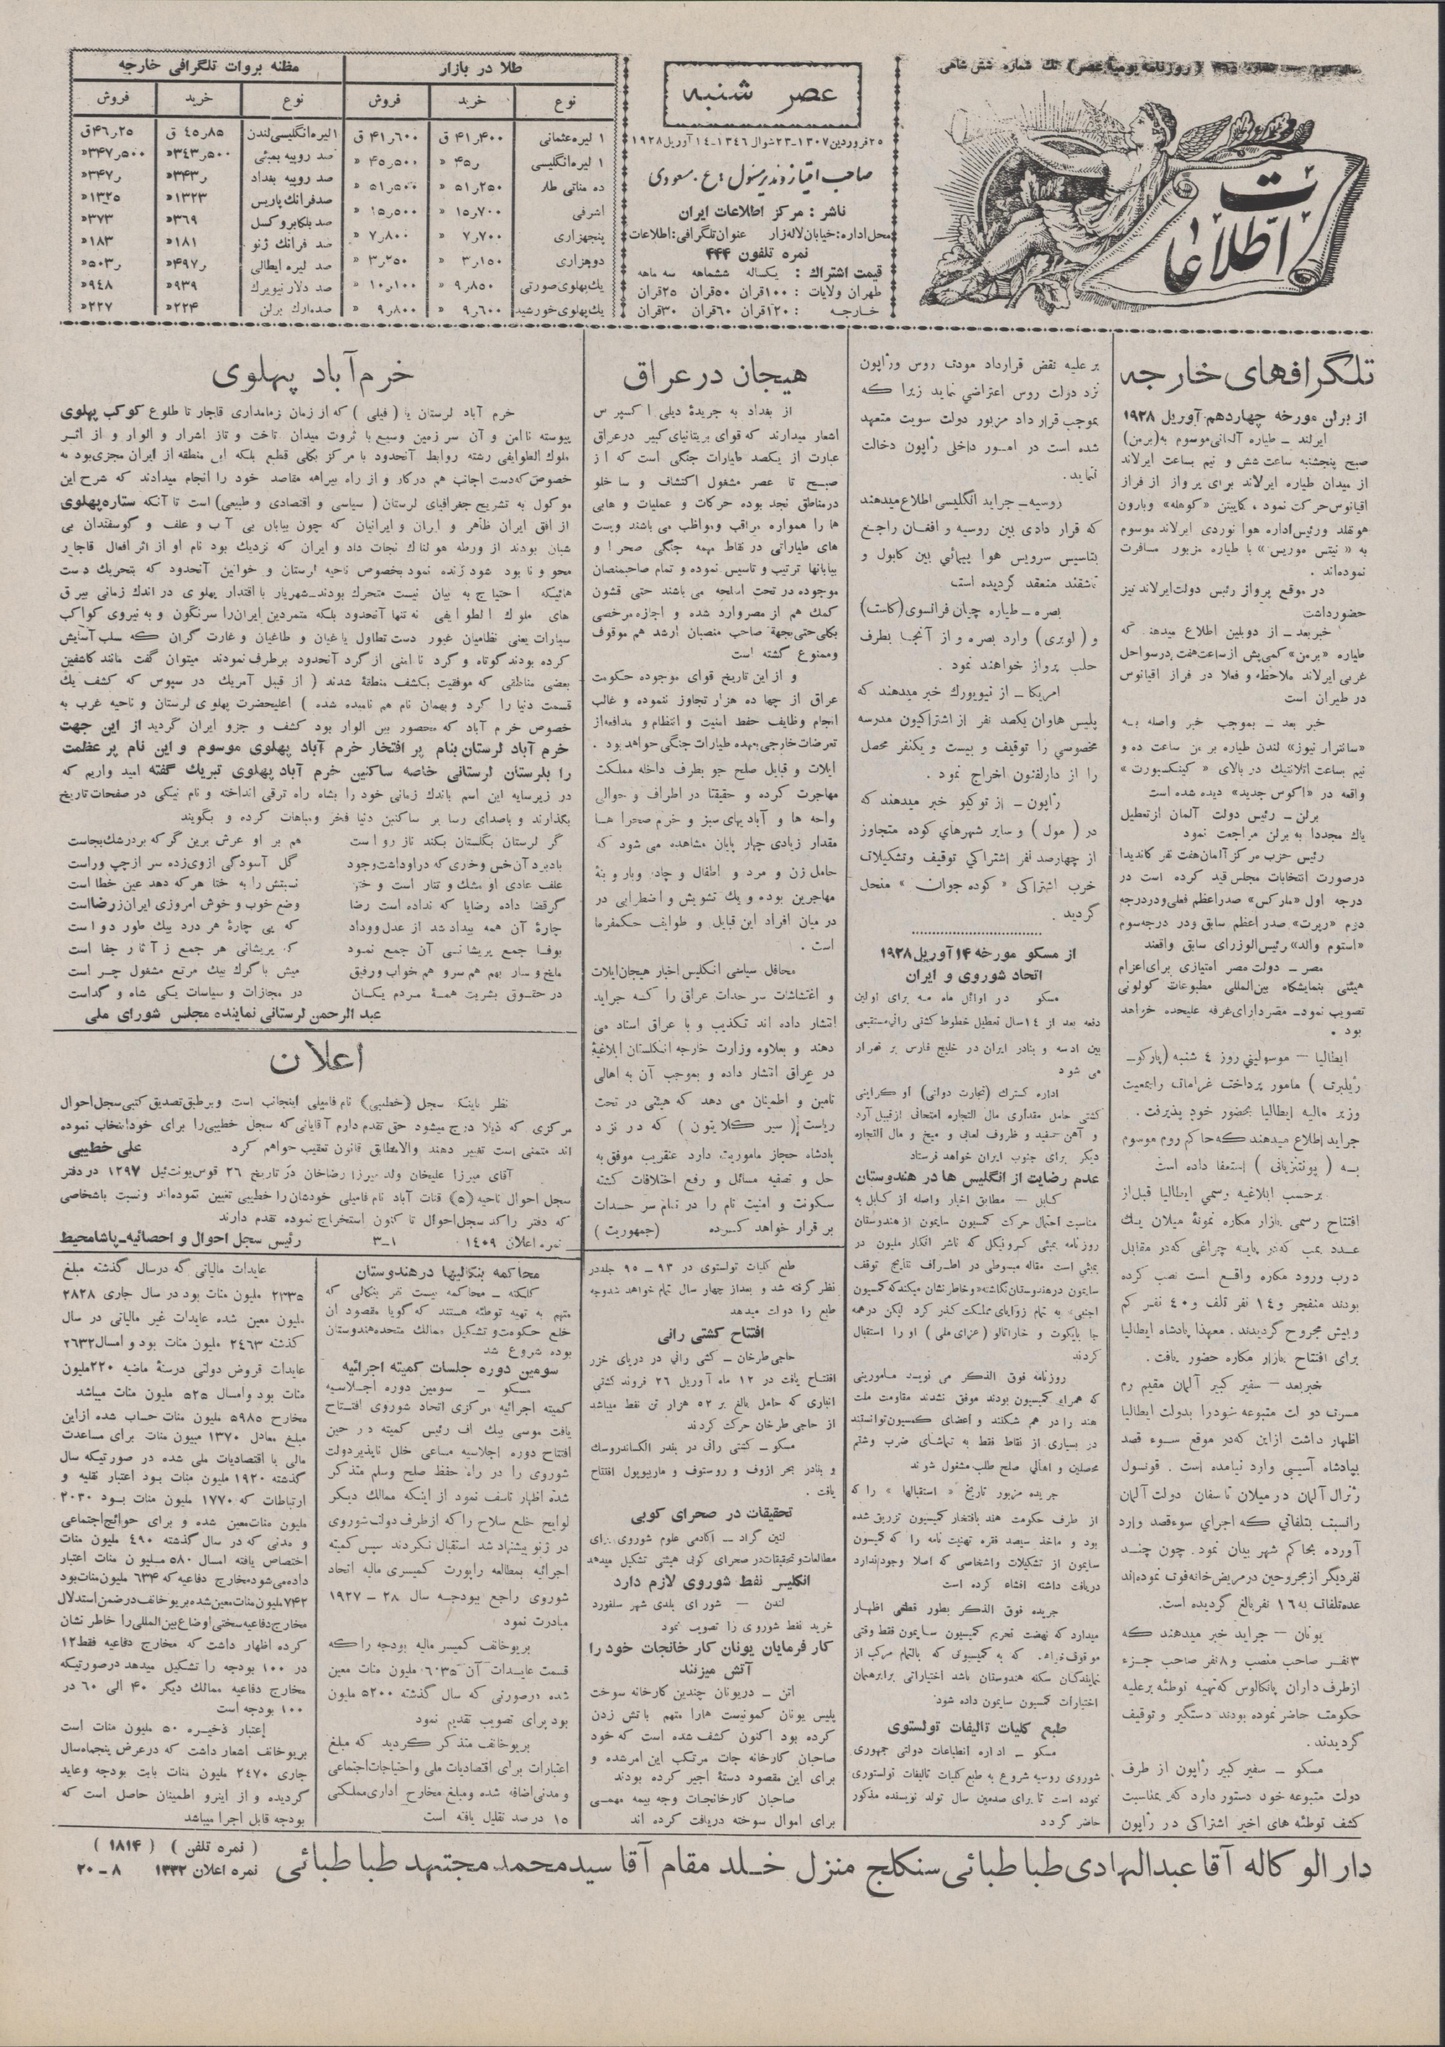 (روزنامه یومیه عصر) تك شماره شش شاهی
اطلاعات
عصر شنبه
۲۵ فروردین ۱۳۰۷ـ۲۳ شوال ۱۳۴۶ـ۱۴ آوریل ۱۹۲۸
صاحب امتیاز و مدیر مسئول : ع . مسعودی
ناشر : مرکز اطلاعات ایران
محل اداره: خیابان لاله زار عنوان تلگرافی: اطلاعات
نمره تلفون ۴۴۴
قیمت اشتراك : یکساله ششماهه سه ماهه
طهران ولایات : ۱۰۰قران ۵۰قران ۲۵قران
خارجه : ۱۲۰قران ۶۰قران ۳۰قران
طلا در بازار
نوع خرید فروش
۱ لیره عثمانی ۴۱٫۴۰۰ ق ۴۱٫۶۰۰ ق
۱ لیره انگلیسی ۴۵٫ « ۴۵٫۵۰۰ «
ده مناتی طار ۵۱٫۲۵۰ « ۵۱٫۵۰۰ «
اشرفی ۱۵٫۷۰۰ « ۱۵٫۵۰۰ «
پنجهزاری ۷٫۷۰۰ « ۷٫۸۰۰ «
دوهزاری ۳٫۱۵۰ « ۳٫۲۵۰ «
یك پهلوی صورتی ۹٫۸۵۰ « ۱۰٫۱۰۰ «
یك پهلوی خورشید ۹٫۶۰۰ « ۹٫۸۰۰ «
مظنه بروات تلگرافی خارجه
نوع خرید فروش
۱ لیره انگلیسی لندن ۴۵٫۸۵ ق ۴۶٫۲۵ ق
صد روپیه بمبئی ۳۴۳٫۵۰۰ « ۳۴۷٫۵۰۰ «
صد روپیه بغداد ۳۴۳٫ « ۳۴۷٫ «
صد فرانك پاریس ۱۳۲۳ « ۱۳۲۵ «
صد بلگا بروکسل ۳۶۹ « ۳۷۳ «
صد فرانك ژنو ۱۸۱ « ۱۸۳ «
صد لیره ایطالی ۴۹۷٫ « ۵۰۳٫ «
صد دلار نیویرك ۹۳۹ « ۹۴۸ «
صد مارك برلن ۲۲۴ « ۲۲۷ «
تلگرافهای خارجه
از برلن مورخه چهاردهم آوریل ۱۹۲۸
ایرلند ـ طیاره آلمانی موسوم به (برمن)
صبح پنجشنبه ساعت شش و نیم بساعت ایرلاند
از میدان طیاره ایرلاند برای پرواز از فراز
اقیانوس حرکت نمود ، کاپیتن «کوهله» وبارون
هونفلد ورئیس اداره هوا نوردی ایرلاند موسوم
به « فیتس موریس» با طیاره مزبور مسافرت
نموده اند .
در موقع پرواز رئیس دولت ایرلاند نیز
حضور داشت
خبر بعد ـ از دوبلین اطلاع میدهند که
طیاره «برمن» کمی پش از ساعت هفت در سواحل
غربی ایرلاند ملاحظه و فعلا در فراز اقیانوس
در طیران است
خبر بعد ـ بموجب خبر واصله بـه
«سانترار نیوز» لندن طیاره بر من ساعت ده و
نیم بساعت اتلانتیك در بالای « کینکسبورت »
واقعه در «اکوس جدید» دیده شده است
برلن ـ رئیس دولت آلمان از تعطیل
پاك مجددا به برلن مراجعت نمود
رئیس حزب مرکز آلمان هفت نفر کاندیدا
درصورت انتخابات مجلس قید کرده است در
درجه اول «مارکس» صدر اعظم فعلی ودر درجه
دوم «ریرت» صدر اعظم سابق ودر درجه سوم
«استوم والد» رئیس الوزرای سابق واقعند
مصر ـ دولت مصر امتیازی برای اعزام
هیئتی بنمایشگاه بین المللی مطبوعات کولونی
تصویب نمود ـ مصر دارای غرفه علیحده خواهد
بود .
ایطالیا ـ موسولینی روز ٤ شنبه (پارکو ـ
ژیلبرت ) مامور پرداخت غرامات را بمعیت
وزیر مالیه ایطالیا بحضور خود پذیرفت .
جراید اطلاع میدهند که حاکم روم موسوم
بـه ( پوتنزیانی ) استعفا داده است
برحسب ابلاغیه رسمی ایطالیا قبل از
افتتاح رسمی بازار مکاره نمونهٔ میلان یـك
عـدد بمب که در پایـه چراغی که در مقابل
درب ورود مکاره واقع است نصب کرده
بودند منفجر و ۱۴ نفر تلف و ۴۰ نفر کم
وبیش مجروح گردیدند . معهذا پادشاه ایطالیا
برای افتتاح بازار مکاره حضور یافت .
خبر بعد ـ سفیر کبیر آلمان مقیم رم
مسرت دولت متبوعه خود را بدولت ایطالیا
اظهار داشت ازاین که در موقع سـوء قصد
بپادشاه آسیبی وارد نیامده است . قونسول
ژنرال آلمان در میلان تاسفان دولت آلمان
را نسبت بتلفاتی که اجرای سوء قصد وارد
آورده بحاکم شهر بیان نمود . چون چنـد
نفر دیگر از مجروحین در مریض خانه فوت نموده اند
عده تلفات به ۱۶ نفر بالغ گردیده است .
یونان ـ جراید خبر میدهند که
۳ نفر صاحب منصب و ۸ نفر صاحب جـزء
از طرف داران پانکالوس که تهیه توطئه بر علیه
حکومت حاضر نموده بودند دستگیر و توقیف
گردیدند .
مسکو ـ سفیر کبیر ژاپون از طرف
دولت متبوعه خود دستور دارد که بمناسبت
کشف توطئه های اخیر اشتراکی در ژاپون
بر علیه نقض قرارداد مودت روس وژاپون
نزد دولت روس اعتراضی نماید زیرا که
بموجب قرار داد مزبور دولت سویت متعهد
شده است در امـور داخلی ژاپون دخالت
نماید .
روسیه ـ جراید انگلیسی اطلاع میدهند
که قرار دادی بین روسیه و افغان راجع
بتاسیس سرویس هوا پیمائی بین کابول و
تاشقند منعقد گردیده است
بصره ـ طیاره چیان فرانسوی (کاست)
و (لوبری) وارد بصره و از آنجا بطرف
حلب پرواز خواهند نمود .
امریکا ـ از نیویورك خبر میدهند که
پلیس هاوان یکصد نفر از اشتراکیون مدرسه
مخصوصی را توقیف و بیست و یکنفر محصل
را از دارالفنون اخراج نمود .
ژاپون ـ از توکیو خبر میدهند که
در ( مول ) و سایر شهرهای کوده متجاوز
از چهار صد نفر اشتراکی توقیف وتشکیلات
خرب اشتراکی « کوده جوان » منحل
گردید .
از مسکو مورخه ۱۴ آوریل ۱۹۲۸
اتحاد شوروی و ایران
مسکو در اوائل ماه مـه برای اولین
دفعه بعد از ۱۴ سال تعطیل خطوط کشتی رانی مستقیمی
بین ادسه و بنادر ایران در خلیج فارس بر قـرار
می شود
اداره کسترك (تجارت دولتی) او کراینی
کشتی حامل مقداری مال التجاره امتحاف از قبیل آرد
و آهن سفید و ظروف لعابی و میخ و مال التجاره
دیگر برای جنوب ایران خواهد فرستاد
عدم رضایت از انگلیس ها در هندوستان
کـابل ـ مطابق اخبار واصله از کابل به
مناسبت احتمال حرکت کمسیون سایمون از هندوستان
روزنامه بمبئی کرونیکل که ناشر افکار ملیون در
بمبئی است مقاله مبسوطی در اطراف نتایج توقف
سایمون درهندوستان نگاشته «وخاطر نشان میکند که کمسیون
اجنبی» به تمام زوایای مملکت گذر کرد لیکن در همه
جا بایکوت و خارتالو (عزای ملی ) او را استقبال
کردند
روزنامه فوق الذکر می نویسد مأمورینی
که همراه کمسیون بودند موفق نشدند مقاومت ملت
هند را در هم شکنند و اعضای کمسیون توانستند
در بسیاری از نقاط فقط به تماشای ضرب وشتم
محصلین و اهالی صلح طلب مشغول شوند
جریده مزبور تاریخ « استقبالها » را که
از طرف حکومت هند بافتخار کمسیون تزریق شده
بود و ماخذ سیصد فقره تهنیت نامه را که کمسیون
سایمون از تشکیلات واشخاصی که اصلا وجود ندارد
دریافت داشته افشاء کرده است
جریده فوق الذکر بطور قطعی اظهار
میدارد که نهضت تحریم کمسیون سایمون فقط وقتی
موقوف خواهد که به کمیسیونی که بالتمام مرکب از
نمایندگان سکنه هندوستان باشد اختیاراتی برابر همان
اختیارات کمسیون سایمون داده شود
طبع کلیات تالیفات تولستوی
مسکو ـ اداره انطباعات دولتی جمهوری
شوروی روسیه شروع به طبع کلیات تالیفات تولستوری
نموده است تا برای صدمین سال تولد نویسنده مذکور
حاضر گردد
هیجان در عراق
از بغداد به جریدهٔ دیلی اکسپرس
اشعار میدارند که قوای بریتانیای کبیر در عراق
عبارت از یکصد طیارات جنگی است که از
صبـح تا عصر مشغول اکتشاف و ساخلو
در مناطق نجد بوده حرکات و عملیات وهابی
ها را همواره مراقب ومواظب می باشند وپست
های طیاراتی در نقاط مهمه جنگی صحرا و
بیابانها ترتیب و تاسیس نموده و تمام صاحبمنصان
موجوده در تحت اسلحه می باشند حتی قشون
کمك هم از مصر وارد شده و اجازه مرخصی
بکلی حتی بجهة صاحب منصبان ارشد هم موقوف
وممنوع گشته است
و از این تاریخ قوای موجوده حکومت
عراق از چهار ده هزار تجاوز ننموده و غالب
انجام وظایف حفظ امنیت و انتظام و مدافعه از
تعرضات خارجی بعهده طیارات جنگی خواهد بود .
ایلات و قبایل صلح جو بطرف داخله مملکت
مهاجرت کرده و حقیقتا در اطراف و حوالی
واحه ها و آبادیهای سبز و خرم صحرا هـا
مقدار زیادی چهار پایان مشاهده می شود که
حامل زن و مرد و اطفال و چادر وباروبنهٔ
مهاجرین بوده و یك تشویش و اضطرابی در
در میان افراد این قبایل و طوایف حکمفرما
است .
محافل سیاسی انکلیس اخبار هیجان ایلات
و اغتشاشات سر حدات عراق را کـه جراید
انتشار داده اند تکذیب و با عراق اسناد می
دهند و بعلاوه وزارت خارجه انکلستان ابلاغیهٔ
در عراق انتشار داده و بموجب آن به اهالی
تامین و اطمینان می دهد که هیئتی در تحت
ریاست (سیر کلایتون ) که در نزد
پادشاه حجاز ماموریت دارد عنقریب موفق به
حل و تصفیه مسائل و رفع اختلافات کشته
سکونت و امنیت تام را در تمام سر حـدات
بر قرار خواهد کـرده (جمهوریت)
طبع کلیات تولستوی در ۹۳ ـ ۹۵ جلد در
نظر گرفته شد و بعداز چهار سال تمام خواهد شد وجه
طبع را دولت میدهد
افتتاح کشتی رانی
حاجی طرخان ـ کشی رانی در دریای خزر
افتتاح یافت در ۱۲ ماه آوریل ۲۶ فروند کشتی
انباری که حامل بالغ بر ۵۲ هزار تن نفط میباشد
از حاجی طرخان حرکت کردند
مسکو ـ کشتی رانی در بندر الکساندروسك
و بنادر بحر ازوف و روستوف و ماریوپول افتتاح
یافت .
تحقیقات در صحرای کوبی
لنین گراد ـ اکادمی علوم شوروی برای
مطالعات وتحقیقات در صحرای کوبی هیئتی تشکیل میدهد
انگلیس نفط شوروی لازم دارد
لندن ـ شورای بلدی شهر سلفورد
خرید نفط شوروی را تصویب نمود
کار فرمایان یونان کار خانجات خود را
آتش میزنند
اتن ـ دریونان چندین کارخانه سوخت
پلیس یونان کمونیست هارا متهم باتش زدن
کرده بود اکنون کشف شده است که خود
صاحبان کارخانه جات مرتکب این امر شده و
برای این مقصود دستهٔ اجیر کرده بودند
صاحبان کارخانجات وجه بیمه مهمـی
برای اموال سوخته دریافت کرده اند
خرم آباد پهلوی
خرم آباد لرستان یا ( فیلی ) که از زمان زمامداری قاجار تا طلوع کوکب پهلوی
پیوسته ناامن و آن سر زمین وسیع با ثروت میدان تاخت و تاز اشرار و الوار و از اثـر
ملوك الطوایفی رشته روابط آنحدود با مرکز بکلی قطع بلکه این منطقه از ایران مجزی بود به
خصوص که دست اجانب هم درکار و از راه بیراهه مقاصد خود را انجام میدادند که شرح این
موکول به تشریح جغرافیای لرستان ( سیاسی و اقتصادی و طبیعی) است تا آنکه ستاره پهلوی
از افق ایران ظاهر و ایران و ایرانیان که چون بیابان بی آب و علف و گوسفندان بی
شبان بودند از ورطه هولناك نجات داد و ایران که نزدیك بود نام او از اثر افعال قاجار
محو و نابود شود زنده نمود بخصوص ناحیه لرستان و خوانین آنحدود که بتحریك دست
هائیکه احتیاج به بیان نیست متحرك بودند ـ شهریار با اقتدار پهلوی در اندك زمانی بیرق
های ملوك الطوایفی نه تنها آنحدود بلکه متمردین ایران را سرنگون و به نیروی کواکب
سیارات یعنی نظامیان غیور دست تطاول یاغیان و طاغیان و غارت گران که سلب آسایش
کرده بودند کوتاه و گرد ناامنی از گرد آنحدود برطرف نمودند میتوان گفت مانند کاشفین
بعضی مناطقی که موفقیت بکشف منطقهٔ شدند ( از قبیل آمریك در سپوس که کشف یك
قسمت دنیا را کرد وبهمان نام هم نامیده شده ) اعلیحضرت پهلوی لرستان و ناحیه غرب به
خصوص خرم آباد که محصور بین الوار بود کشف و جزو ایران گردید از این جهت
خرم آباد لرستان بنام پر افتخار خرم آباد پهلوی موسوم و این نام پر عظمت
را بلرستان لرستانی خاصه ساکنین خرم آباد پهلوی تبریك گفته امید واریم که
در زیر سایه این اسم باندك زمانی خود را بشاه راه ترقی انداخته و نام نیکی در صفحات تاریخ
بگذارند و باصدای رسا بر ساکنین دنیا فخر ومباهات کرده و بگویند
گر لرستان بگلستان بکند ناز رواست هم بر او عرش برین گر که برد رشك بجاست
بادبرد آن خس و خاری که در او داشت وجود گل آسودگی از وی زده سر از چپ و راست
علف عادی او مشك و تتار است و ختن نسبتش را به ختا هر که دهد عین خطا است
گر قضا داده رضایا که نداده است رضا وضع خوب و خوش امروزی ایران ز رضا است
چارهٔ آن همه بیداد شد از عدل و وداد که پی چارهٔ هر درد بیك طور دواست
بوفا جمع پریشانـی آن جمع نمود که پریشانی هر جمع ز آثار جفا است
ملخ و سار بهم هم سر و هم خواب و رفیق میش با گرك بیك مرتع مشغول چـر است
در حقـوق بشریت همـهٔ مـردم یکسان در مجازات و سیاسات یکی شاه و گداست
عبدالرحمن لرستانی نماینده مجلس شورای ملی
اعلان
نظر باینکه سجل (خطیبی) نام فامیلی اینجانب است وبر طبق تصدیق کتبی سجل احوال
مرکزی که ذیلا درج میشود حق تقدم دارم آقایانی که سجل خطیبی را برای خود انتخاب نموده
اند متمنی است تغییر دهند والامطابق قانون تعقیب خواهم کرد علی خطیبی
آقای میرزا علیخان ولد میرزا رضاخان در تاریخ ۲۶ قوس یونت ئیل ۱۲۹۷ در دفتر
سجل احوال ناحیه (۵) قنات آباد نام فامیلی خودشان را خطیبی تعیین نموده اند ونسبت باشخاصی
که دفتر راکد سجل احوال تا کنون استخراج نموده تقدم دارند
نمره اعلان ۱۴۰۹ ۱ـ۳ رئیس سجل احوال و احصائیه ـ پاشامحیط
محاکمه بنگالیها در هندوستان
کلکته ـ محاکمه بیست نفر بنگالی که
متهم به تهیه توطئه هستند که گویا مقصود آن
خلع حکومت و تشکیل ممالك متحده هندوستان
بوده شروع شد
سومین دوره جلسات کمیته اجرائیه
مسکو ـ سومین دوره اجـلاسیه
کمیته اجرائیه مرکزی اتحاد شوروی افتتـاح
یافت موسی بیك اف رئیس کمیته در حین
افتتاح دوره اجلاسیه مساعی خلل ناپذیر دولت
شوروی را در راه حفظ صلح وسلم متذکر
شده اظهار تاسف نمود از اینکه ممالك دیگر
لوایح خلع سلاح را که از طرف دولت شوروی
در ژنو پیشنهاد شد استقبال نکردند سپس کمیته
اجرائیه بمطالعه راپورت کمیسری مالیه اتحاد
شوروی راجع ببودجـه سال ۲۸ ـ ۱۹۲۷
مبادرت نمود
بریوخانف کمیسر مالیه بودجه را که
قسمت عایـدات آن ۶۰۳۵ ملیون منات معین
شده درصورتی که سال گذشته ۵۲۰۰ ملیون
بود برای تصویب تقدیم نمود
بریوخانف متذکر گردید که مبلغ
اعتبارات برای اقتصادیات ملی واحتیاجات اجتماعی
و مدنی اضافه شده ومبلغ مخارج اداری مملکتی
۱۵ در صد تقلیل یافته است
عایدات مالیاتی که درسال گذشته مبلغ
۲۴۳۵ ملیون منات بود در سال جاری ۲۸۲۸
ملیون معین شده عایدات غیر مالیاتی در سال
گذشته ۲۴۶۳ ملیون منات بود و امسال ۲۶۳۲
عایدات قروض دولتی درسنهٔ ماضیه ۲۲۰ ملیون
منات بود وامسال ۵۲۵ ملیون منات میباشد
مخارج ۵۹۸۵ ملیون منات حساب شده ازاین
مبلغ معادل ۱۳۷۰ میبون منات برای مساعدت
مالی با اقتصادیات ملی شده در صورتیکه سال
گذشته ۱۹۲۰ ملیون منات بـود اعتبار نقلیه و
ارتباطات که ۱۷۷۰ ملیون منات بـود ۲۰۳۰
ملیون منات معین شده و برای حوائج اجتماعی
و مدنی که در سال گذشته ۴۹۰ ملیون منات
اختصاص یافته امسال ۵۸۰ ملیون منات اعتبار
داده می شود مخارج دفاعیه که ۶۳۴ ملیون منات بود
۷۴۲ ملیون منات معین شده بریوخانف در ضمن استدلال
مخارج دفاعیه سختی اوضاع بین المللی را خاطر نشان
کرده اظهار داشت که مخارج دفاعیه فقط ۱۲
در ۱۰۰ بودجه را تشکیل میدهد درصورتیکه
مخارج دفاعیه ممالك دیگر ۴۰ الی ۶۰ در
۱۰۰ بودجه است
اعتبار ذخیـره ۵۰ ملیون منات است
بریوخانف اشعار داشت که درعرض پنجماه سال
جاری ۲۴۷۰ ملیون منات بابت بودجه وعاید
گردیده و از اینرو اطمینان حاصل است که
بودجه قابل اجرا میباشد
دارالوکاله آقا عبدالهادی طباطبائی سنگلج منزل خـلد مقام آقا سید محمد مجتهد طباطبائی
( نمره تلفن ) ( ۱۸۱۴ )
نمره اعلان ۱۳۳۲ ۸ ـ ۲۰